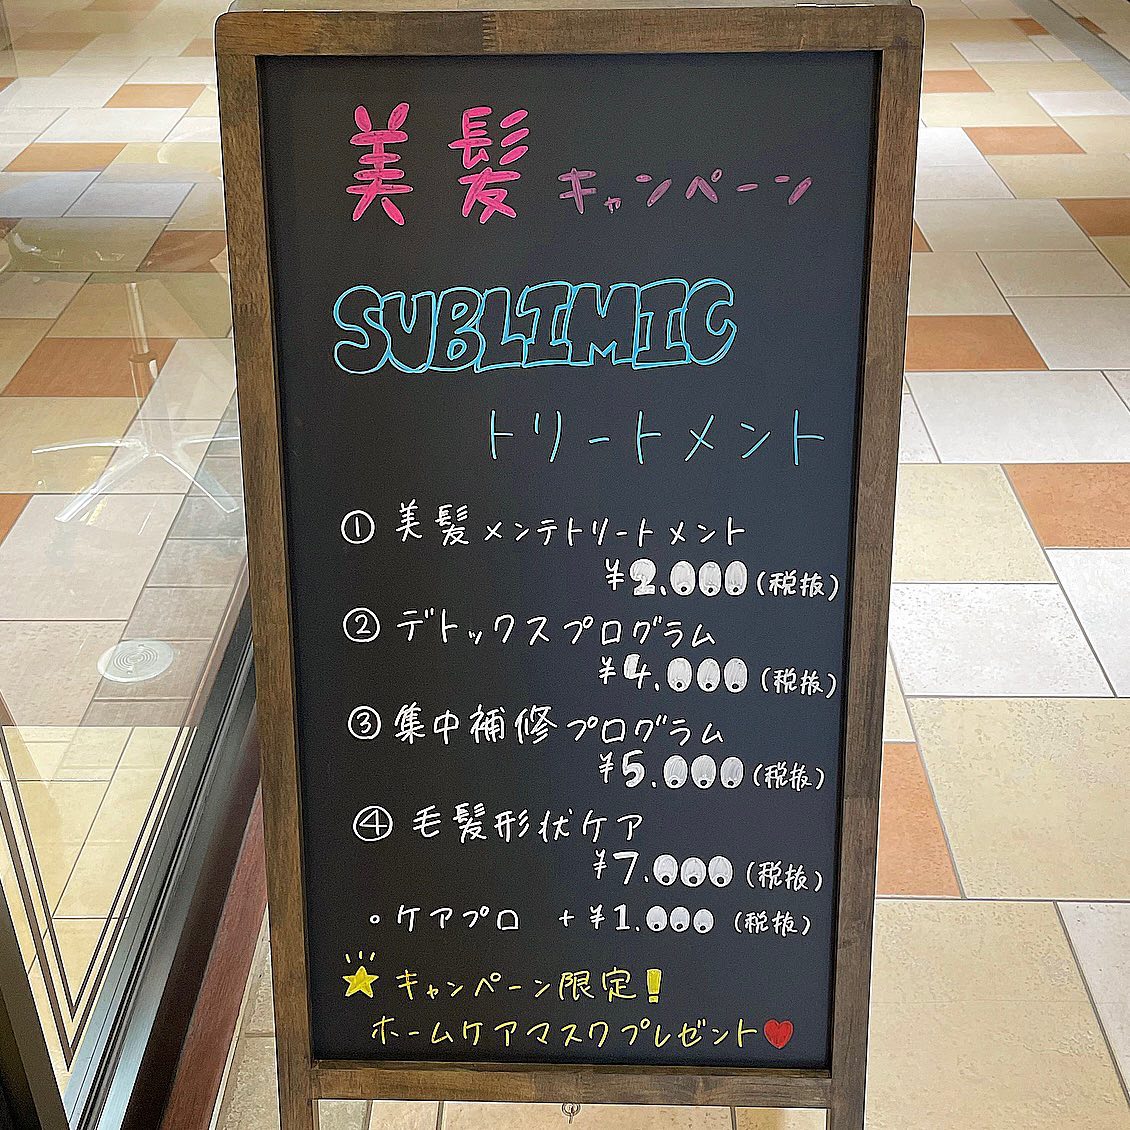 美髪キャンペーン
SUBLIMIC
トリートメント
① 美髪メンテトリートメント
¥2.000(税抜)
② デトックスプログラム
¥4.000(税抜)
③ 集中補修プログラム
¥5.000(税抜)
④ 毛髪形状ケア
¥7.000(税抜)
。ケアプロ +¥1.000(税抜)
★キャンペーン限定!
ホームケアマスクプレゼント♥